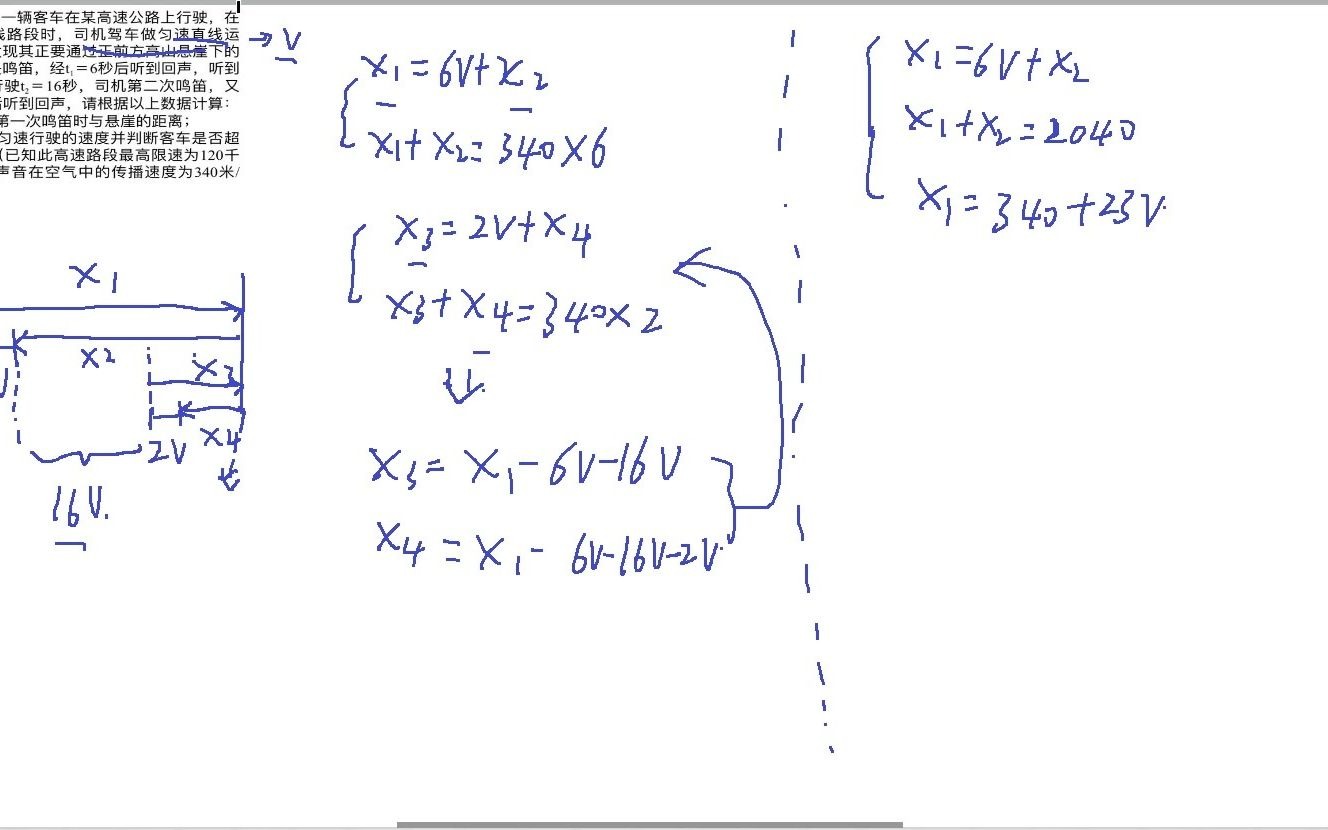 一辆客车在某高速公路上行驶，在
路段时，司机驾车做匀速直线运
现其正要通过正前方高山悬崖下的
鸣笛，经t₁=6秒后听到回声，听到
驶t₂=16秒，司机第二次鸣笛，又
后听到回声，请根据以上数据计算：
第一次鸣笛时与悬崖的距离；
匀速行驶的速度并判断客车是否超
(已知此高速路段最高限速为120千
声音在空气中的传播速度为340米/
→ V
x₁=6V+x₂
x₁+x₂=340×6
x₃=2V+x₄
x₃+x₄=340×2
x₃=x₁-6V-16V
x₄=x₁-6V-16V-2V
x₁=6V+x₂
x₁+x₂=2040
x₁=340+23V
x1
x2
x3
x4
2V
16V.